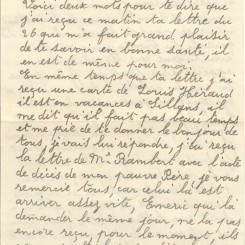 Voici deux mots pour te dire que
j'ai reçu ce matin ta lettre du
26 qui m'a fait grand plaisir
de te savoir en bonne santé, il
en est de même pour moi.
En même temps que ta lettre j'ai
reçu une carte de Louis Héraud
il est en vacances à me
dit qu'il fait pas beau temps
et me prie de te donner le bonjour de
tous, je vais lui répondre, j'ai reçu
la lettre de Mr Rambert avec l'acte
de décès de mon pauvre Père je vous
remercie tous, car celui là est
arriver assez vite, Emeric qui l'a
demander le même jour, ne l'a pas
encore reçu, pour le moment, ils